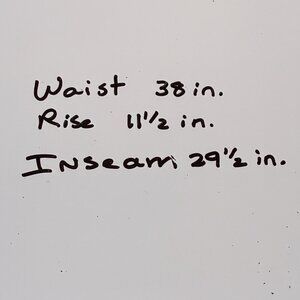 Waist 38 in.
Rise 11 1/2 in.
Inseam 29 1/2 in.